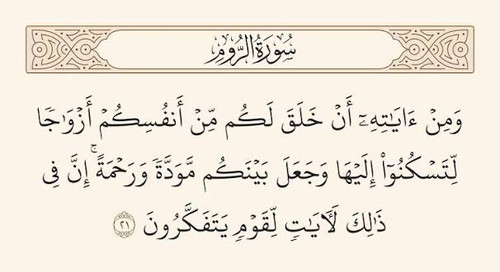 سُورَةُ الرُّومِ
وَمِنْ ءَايَٰتِهِۦٓ أَنْ خَلَقَ لَكُم مِّنْ أَنفُسِكُمْ أَزْوَٰجًا
لِّتَسْكُنُوٓا۟ إِلَيْهَا وَجَعَلَ بَيْنَكُم مَّوَدَّةً وَرَحْمَةً ۚ إِنَّ فِى
ذَٰلِكَ لَءَايَٰتٍ لِّقَوْمٍ يَتَفَكَّرُونَ ٢١